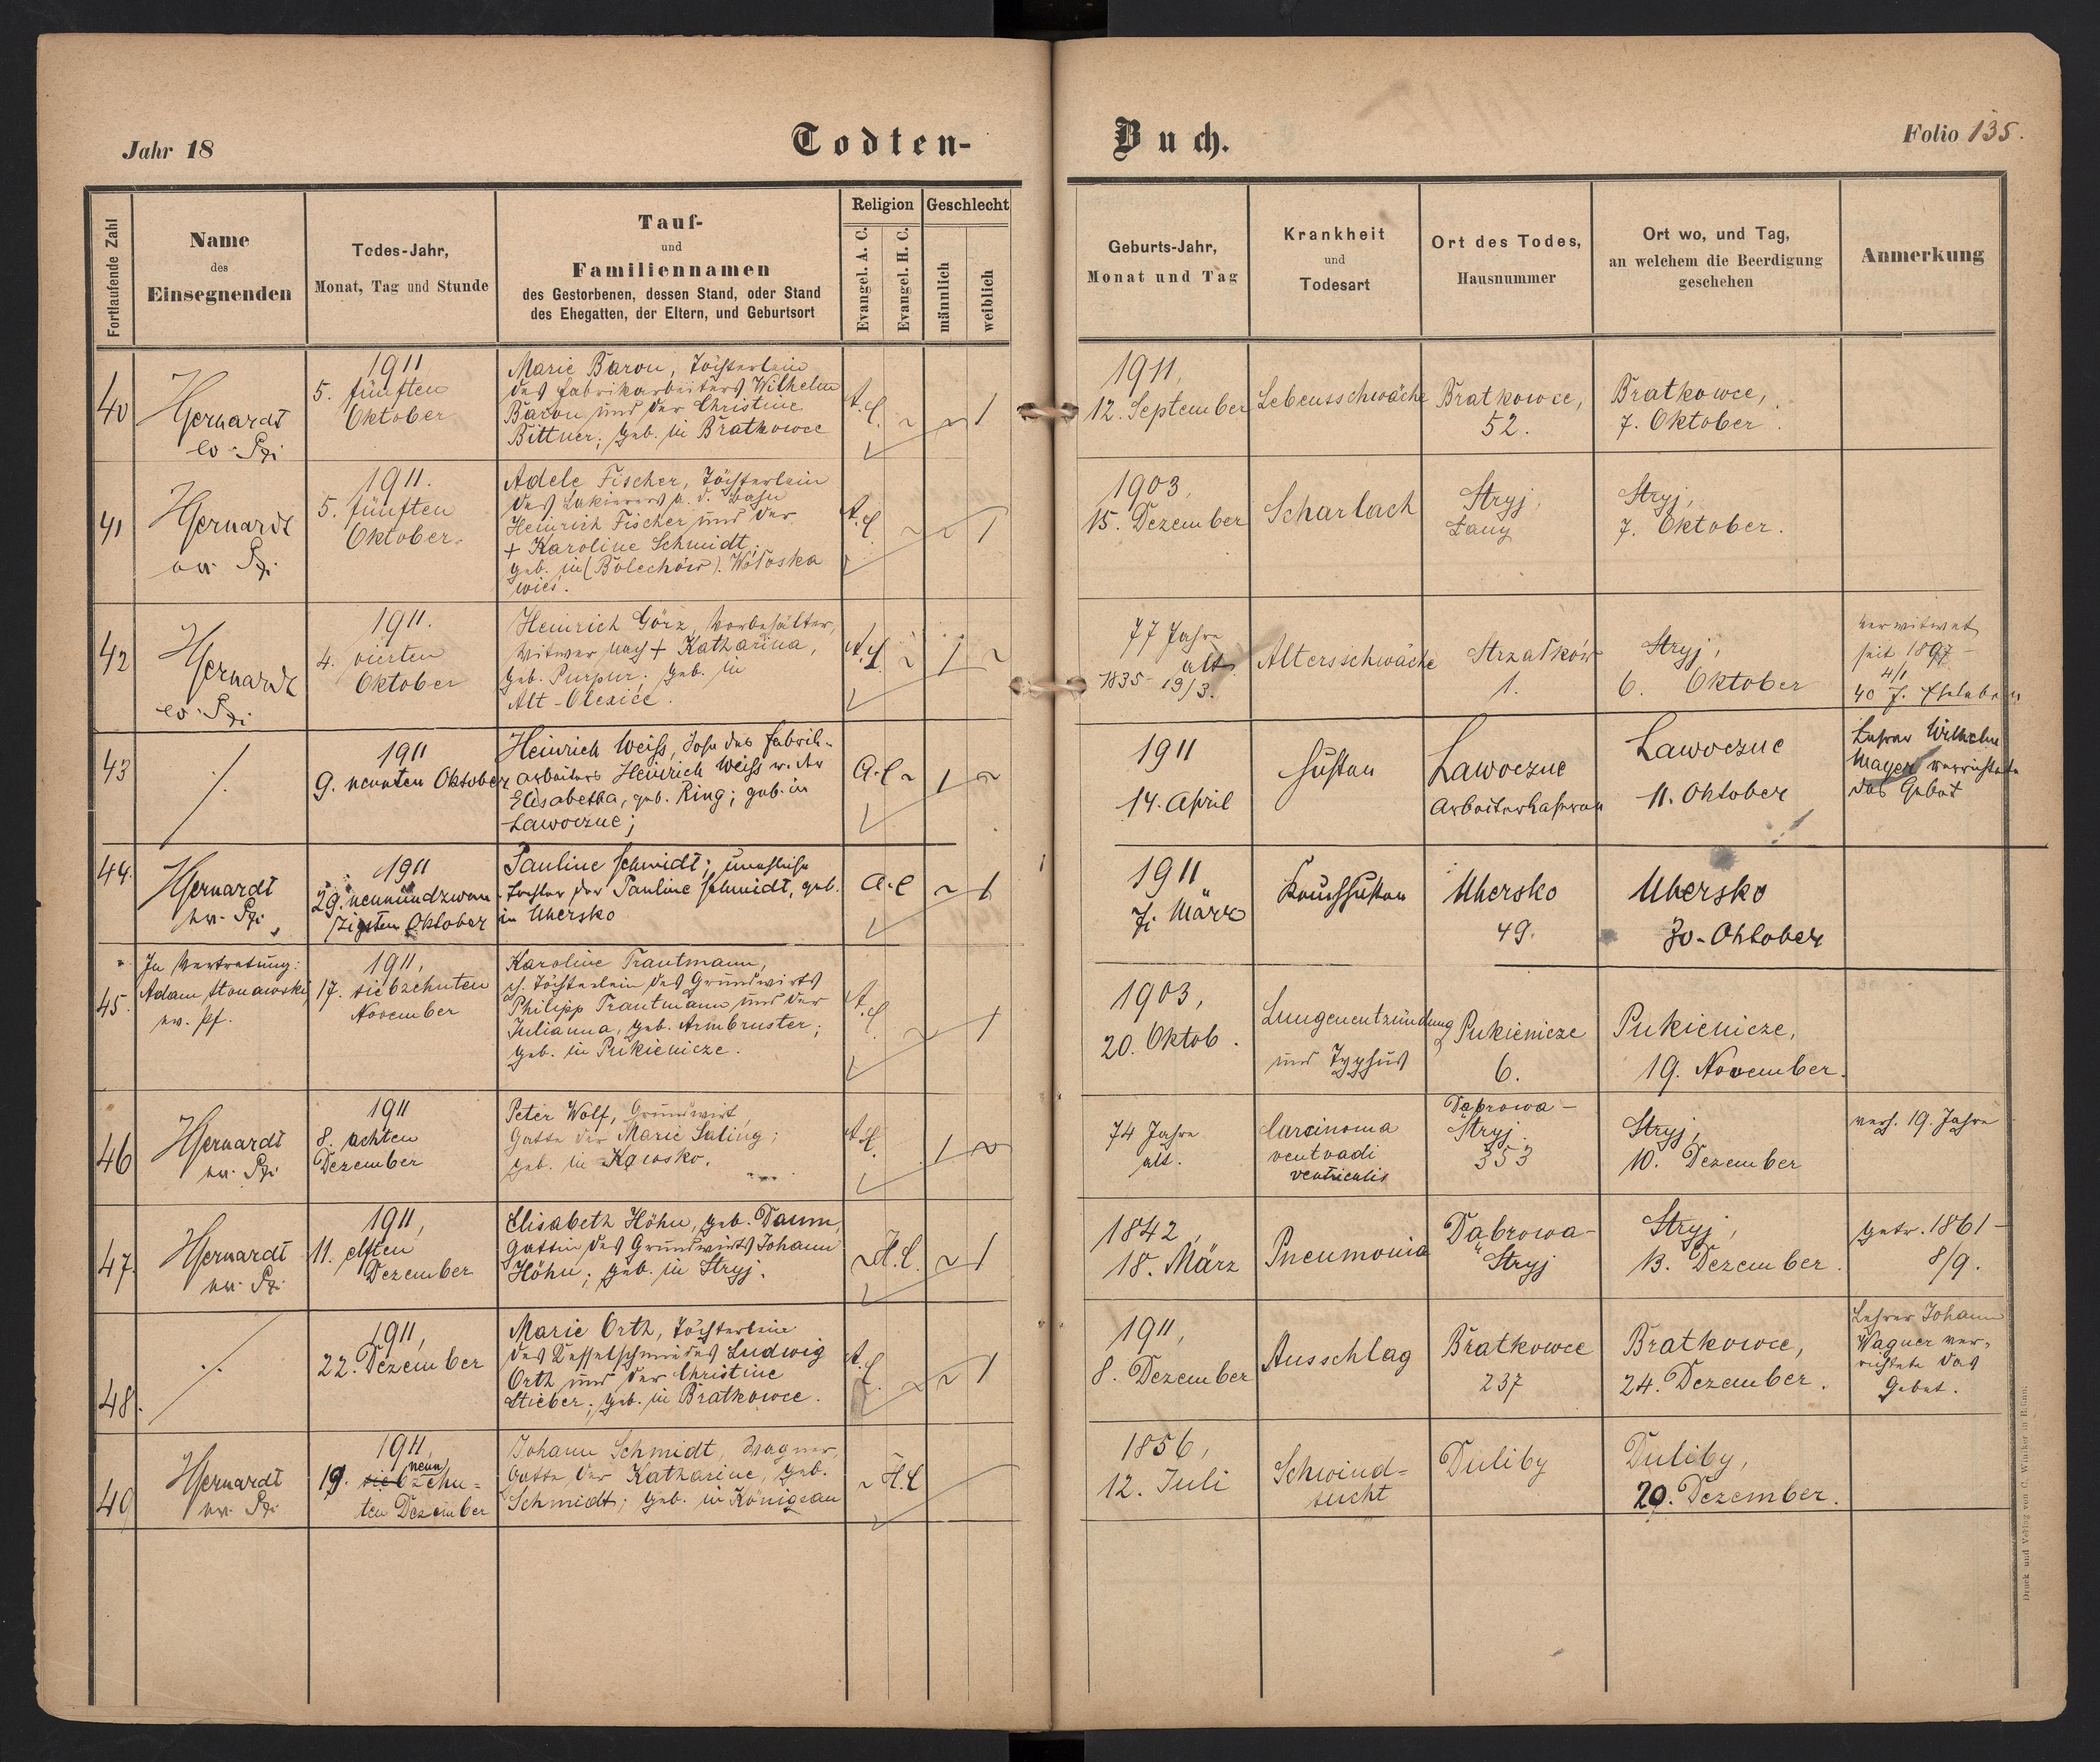 Jahr 18
Todten-
Buch.
Folio 135.
Fortlaufende Zahl
Name
des
Einsegnenden
Todes-Jahr,
Monat, Tag und Stunde
Tauf-
und
Familiennamen
des Gestorbenen, dessen Stand, oder Stand
des Ehegatten, der Eltern, und Geburtsort
Religion
Evangel. A. C.
Evangel. H. C.
Geschlecht
männlich
weiblich
Geburts-Jahr,
Monat und Tag
Krankheit
und
Todesart
Ort des Todes,
Hausnummer
Ort wo, und Tag,
an welchem die Beerdigung
geschehen
Anmerkung
40
1911
5. fünften
Oktober
Marie Baron, Töchterlein
des Fabrikarbeiters Wilhelm
Baron und der Christine
Bittner; geb. in Bratkowce
A.C.
1
1911,
12. September
Lebensschwäche
Bratkowce,
52.
Bratkowce,
7. Oktober.
41
1911.
5. fünften
Oktober.
Adele Fischer, Töchterlein
des Lakierers a. d. Bahn
Heinrich Fischer und der
+ Karoline Schmidt;
geb. in (Bolechów). Wołoska
wieś.
A.C.
1
1903,
15. Dezember
Scharlach
Stryj,
Łany
Stryj,
7. Oktober.
42
1911.
4. vierten
Oktober
Heinrich Görz, Vorbehälter,
Witwer nach + Katharina,
geb. Purpur; geb. in
Alt-Olexice.
A.C.
1
77 Jahre
alt
1835 19/3.
Altersschwäche
Strzałków
1.
Stryj,
6. Oktober
verwitwet
seit 1897
4/1
40 J. Eheleben
43
1911
9. neunten Oktober
Heinrich Weiss, Sohn des Fabrik-
arbeiters Heinrich Weiss u. der
Elisabetha, geb. Ring; geb. in
Lawoczne;
A.C
1
1911
14. April
Husten
Lawoczne
Arbeiterkasernen
Lawoczne
11. Oktober
Lehrer Wilhelm
Mayer verrichtete
das Gebet
44.
1911
29. neunundzwan
zigsten Oktober
Pauline Schmidt; uneheliche
Tochter der Pauline Schmidt, geb.
in Uhersko
A.C
1
1911
7. März
Keuchhusten
Uhersko
49.
Uhersko
30. Oktober
45.
In Vertretung:
Adam Stonawski,
ev. Pf.
1911,
17. siebzehnten
November
Karoline Trautmann,
Töchterlein des Grundwirts
Philipp Trautmann und der
Julianna, geb. Armbruster;
geb. in Pukienicze.
A.C.
1
1903,
20. Oktob.
Lungenentzündung
und Typhus
Pukienicze
6.
Pukienicze,
19. November.
46
1911
8. achten
Dezember
Peter Wolf, Grundwirt
Gatte der Marie Saling;
geb. in Kawsko.
A.C.
1
74 Jahre
alt.
Carcinoma
ventriculis
Dąbrowa-
Stryj.
353
Stryj,
10. Dezember
verh. 19. Jahre
47.
1911,
11. elften
Dezember
Elisabeth Höhn, geb. Daum,
Gattin des Grundwirts Johann
Höhn; geb. in Stryj.
H.C.
1
1842,
18. März
Pneumonia
Dąbrowa-
Stryj
Stryj,
13. Dezember.
getr. 1861
8/9.
48.
1911,
22. Dezember
Marie Orth, Töchterlein
des Kesselschmiedes Ludwig
Orth und der Christine
Stieber; geb. in Bratkowce.
A.C.
1
1911,
8. Dezember
Ausschlag
Bratkowce
237
Bratkowce,
24. Dezember.
Lehrer Johann
Wagner ver-
richtete das
Gebet.
49
1911,
neun
19. siebzehn-
ten Dezember
Johann Schmidt, Wagner,
Gatte der Katharine, geb.
Schmidt; geb. in Königsau
H.C
1856,
12. Juli
Schwind-
sucht
Duliby
Duliby,
20. Dezember.
Druck und Verlag von C. Winiker in Brünn.